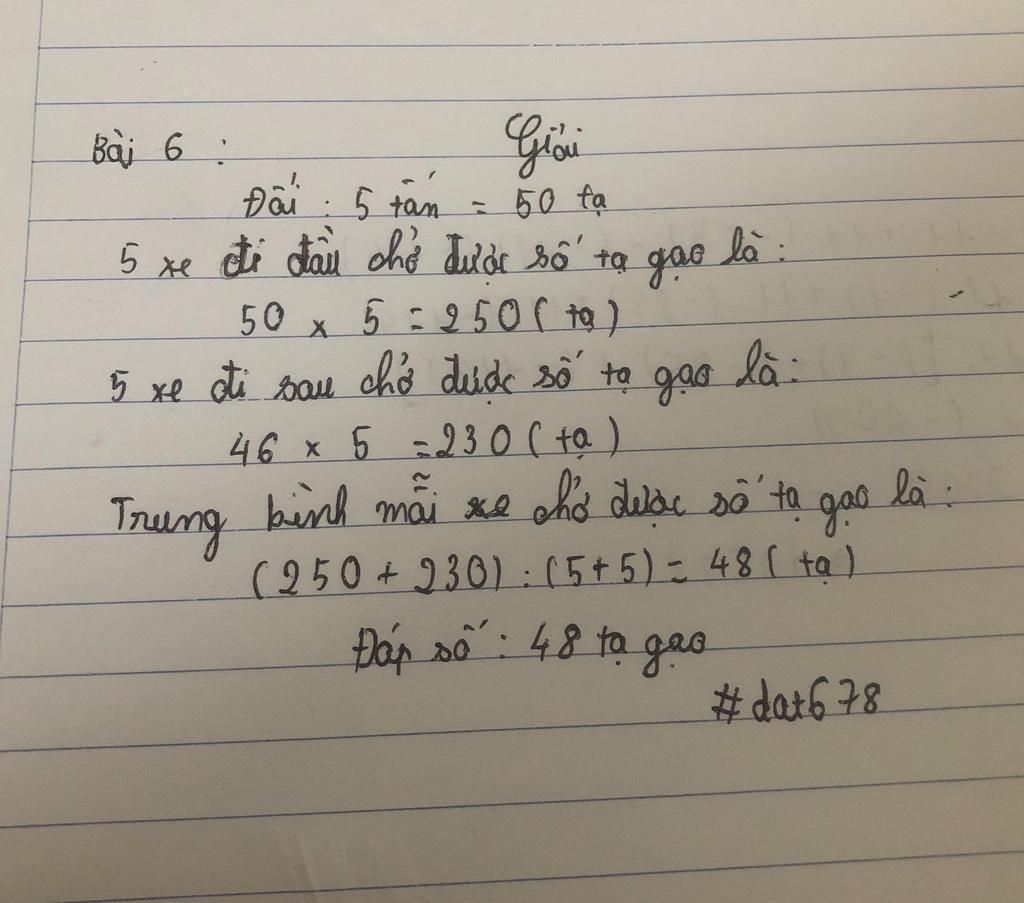 Bài 6 : Giải
Đổi : 5 tấn = 50 tạ
5 xe đi đầu chở được số tạ gạo là :
50 x 5 = 250 ( tạ )
5 xe đi sau chở được số tạ gạo là :
46 x 5 = 230 ( tạ )
Trung bình mỗi xe chở được số tạ gạo là :
(250 + 230) : (5+5) = 48 ( tạ )
Đáp số : 48 tạ gạo
#dat678